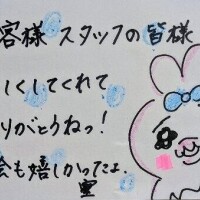 客様 スタッフの皆様
しくしてくれて
りがとうねっ!
会も嬉しかったよ.